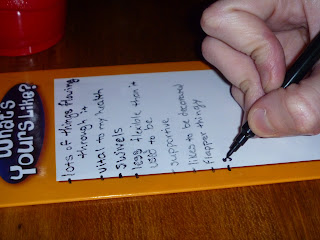 What's
Yours Like?
- lots of things flowing
through it
- vital to my health
- swivels
- less flexible than it
used to be
- supportive
- likes to be decorated
- flapper thingy